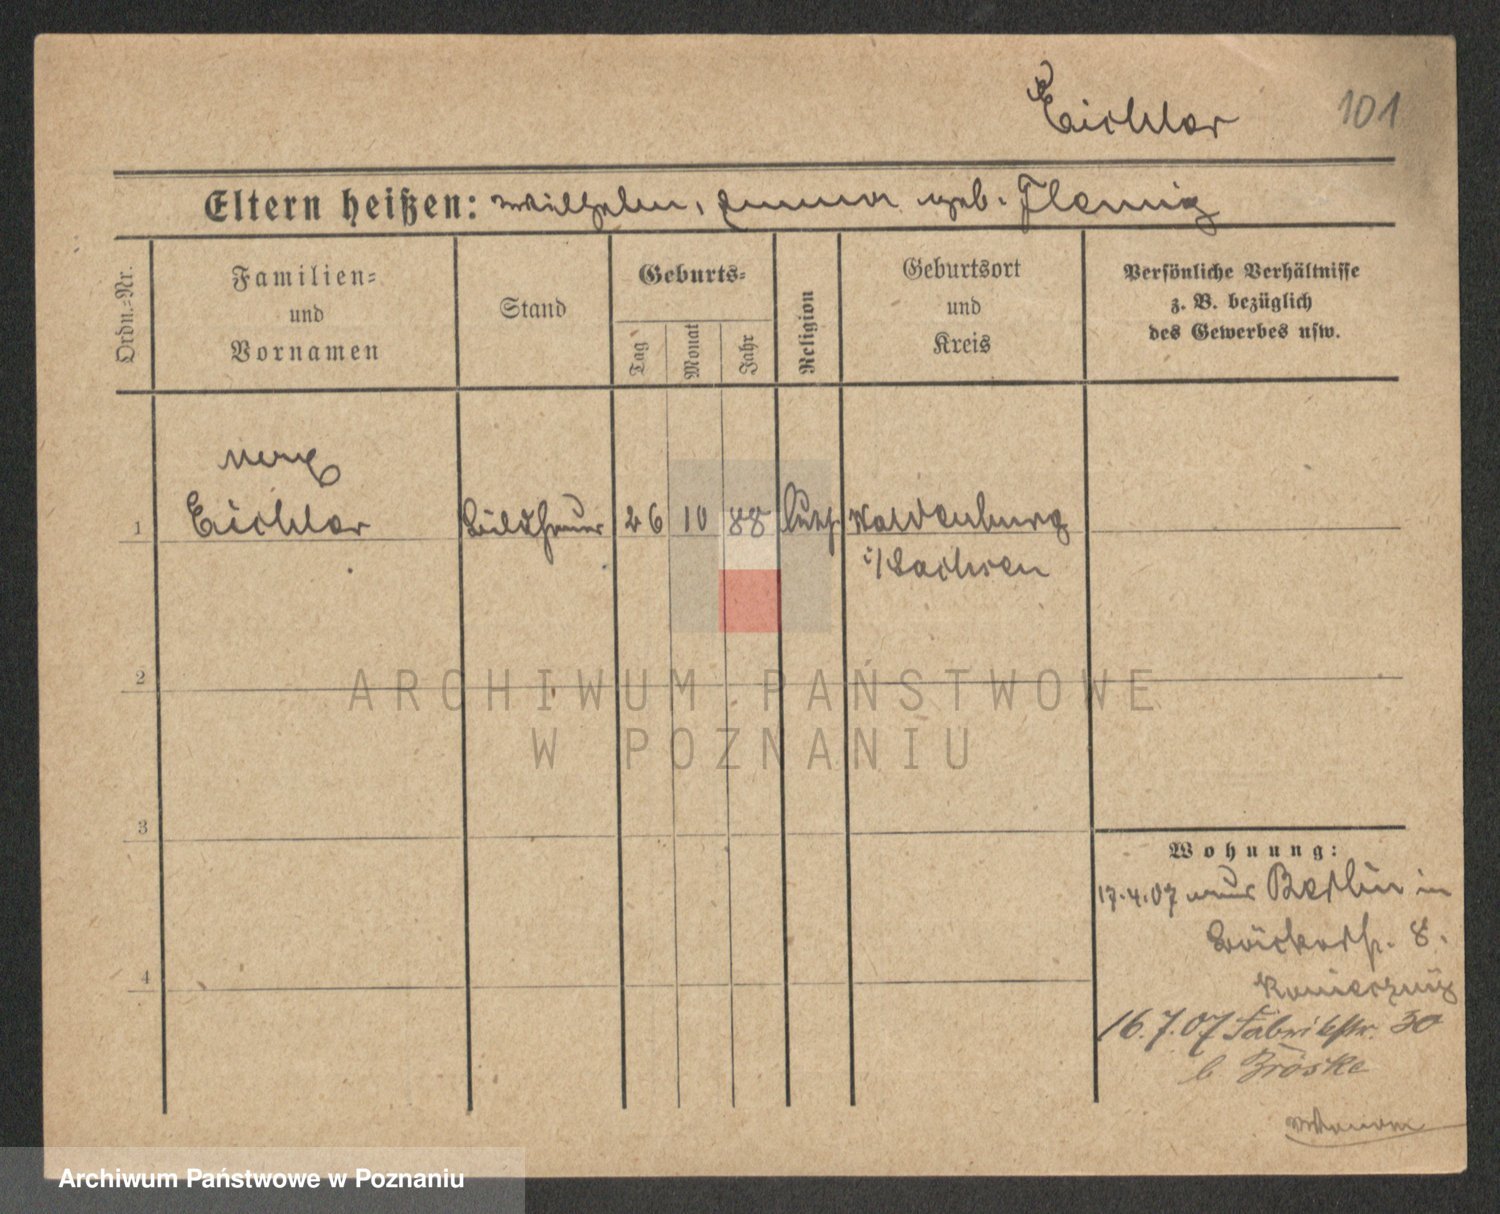 Eichler 101
Eltern heißen: Wilhelm, Emma geb. Flemig
Ordn.=Nr.
Familien=
und
Vornamen
Stand
Geburts=
Tag
Monat
Jahr
Religion
Geburtsort
und
Kreis
Persönliche Verhältnisse
z. B. bezüglich
des Gewerbes usw.
Max
1 Eichler Bildhauer 26 10 88 luth. Waldenburg
i/Sachsen
2
ARCHIWUM PAŃSTWOWE
W POZNANIU
3
Wohnung:
17.4.07 aus Berlin in
Bäckerstr. 8.
4
16.7.07 Fabrikstr. 30
b Zröske
Archiwum Państwowe w Poznaniu